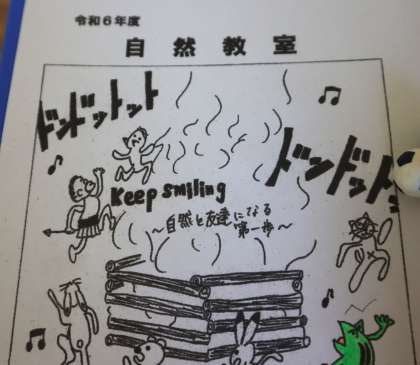 令和6年度
自然教室
ドンドットット
ドンドット
Keep smiling
～自然と友達になる
第一歩～